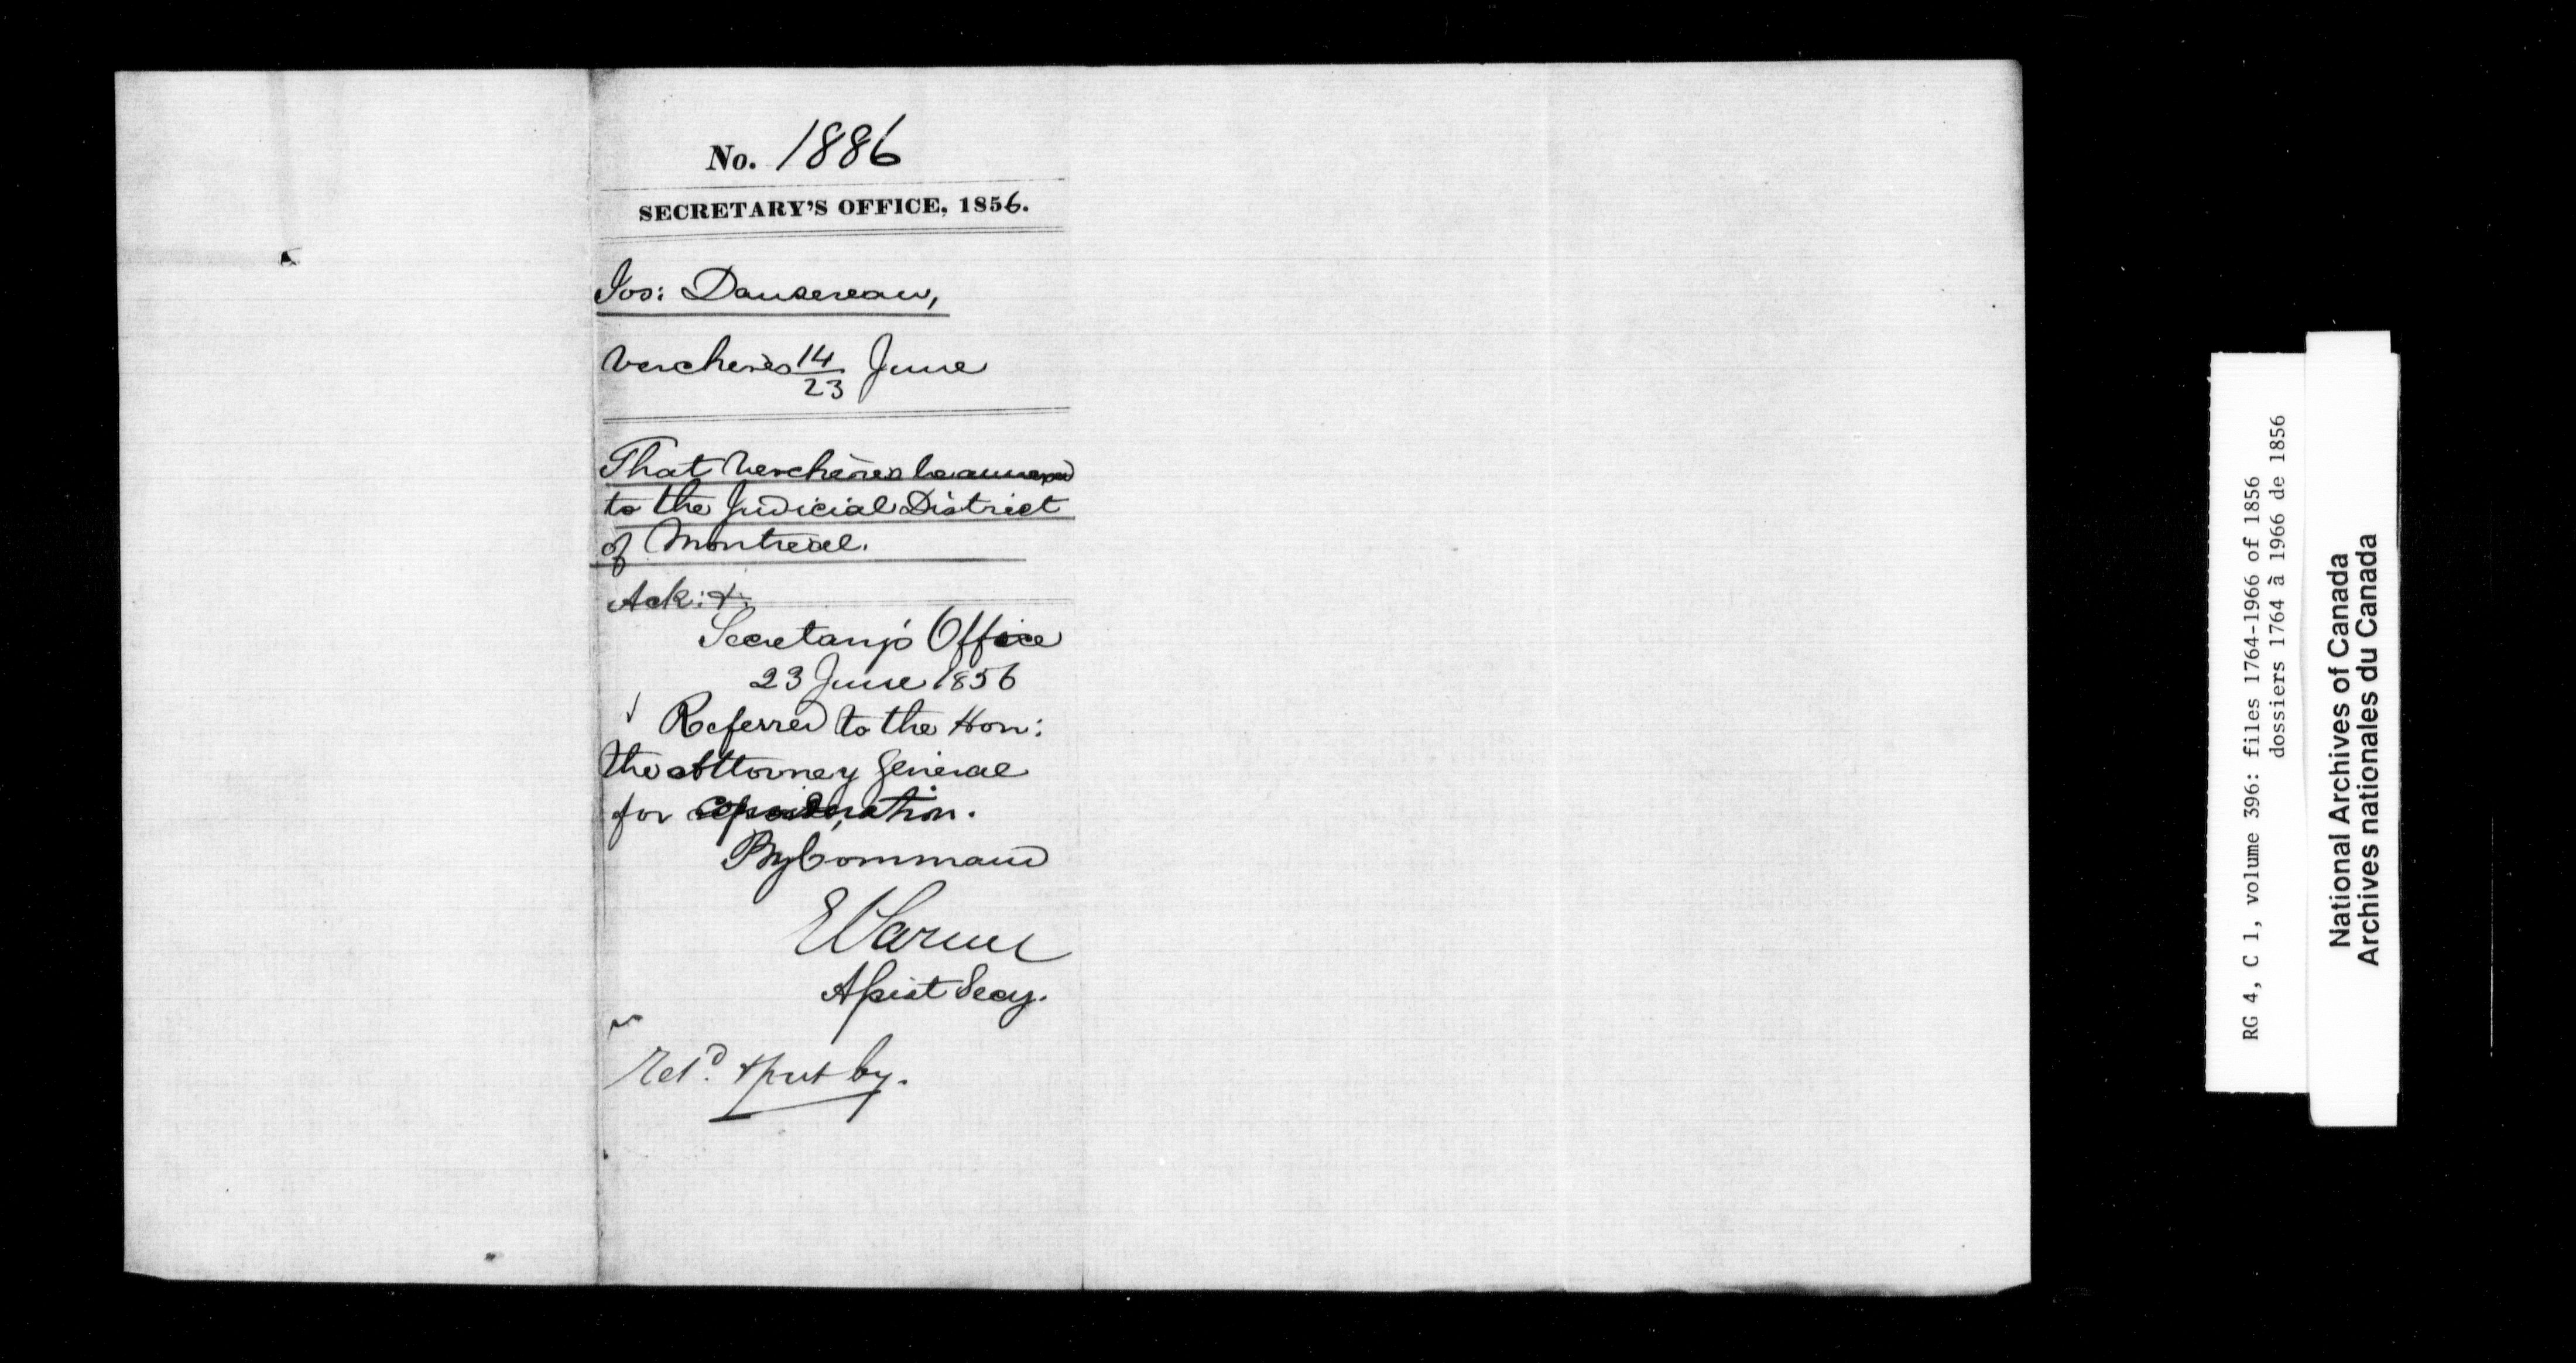 No. 1886
SECRETARY'S OFFICE, 1856.
Jos: Dansereau,
Verchères 14/23 June
That Verchères be annexed
to the Judicial District
of Montreal.
Ack: &.
Secretary's Office
23 June 1856
Referred to the Hon:
the Attorney General
for consideration.
By Command
E Parent
Assist Secy.
Retd. & put by.
RG 4, C 1, volume 396: files 1764-1966 of 1856
dossiers 1764 à 1966 de 1856
National Archives of Canada
Archives nationales du Canada